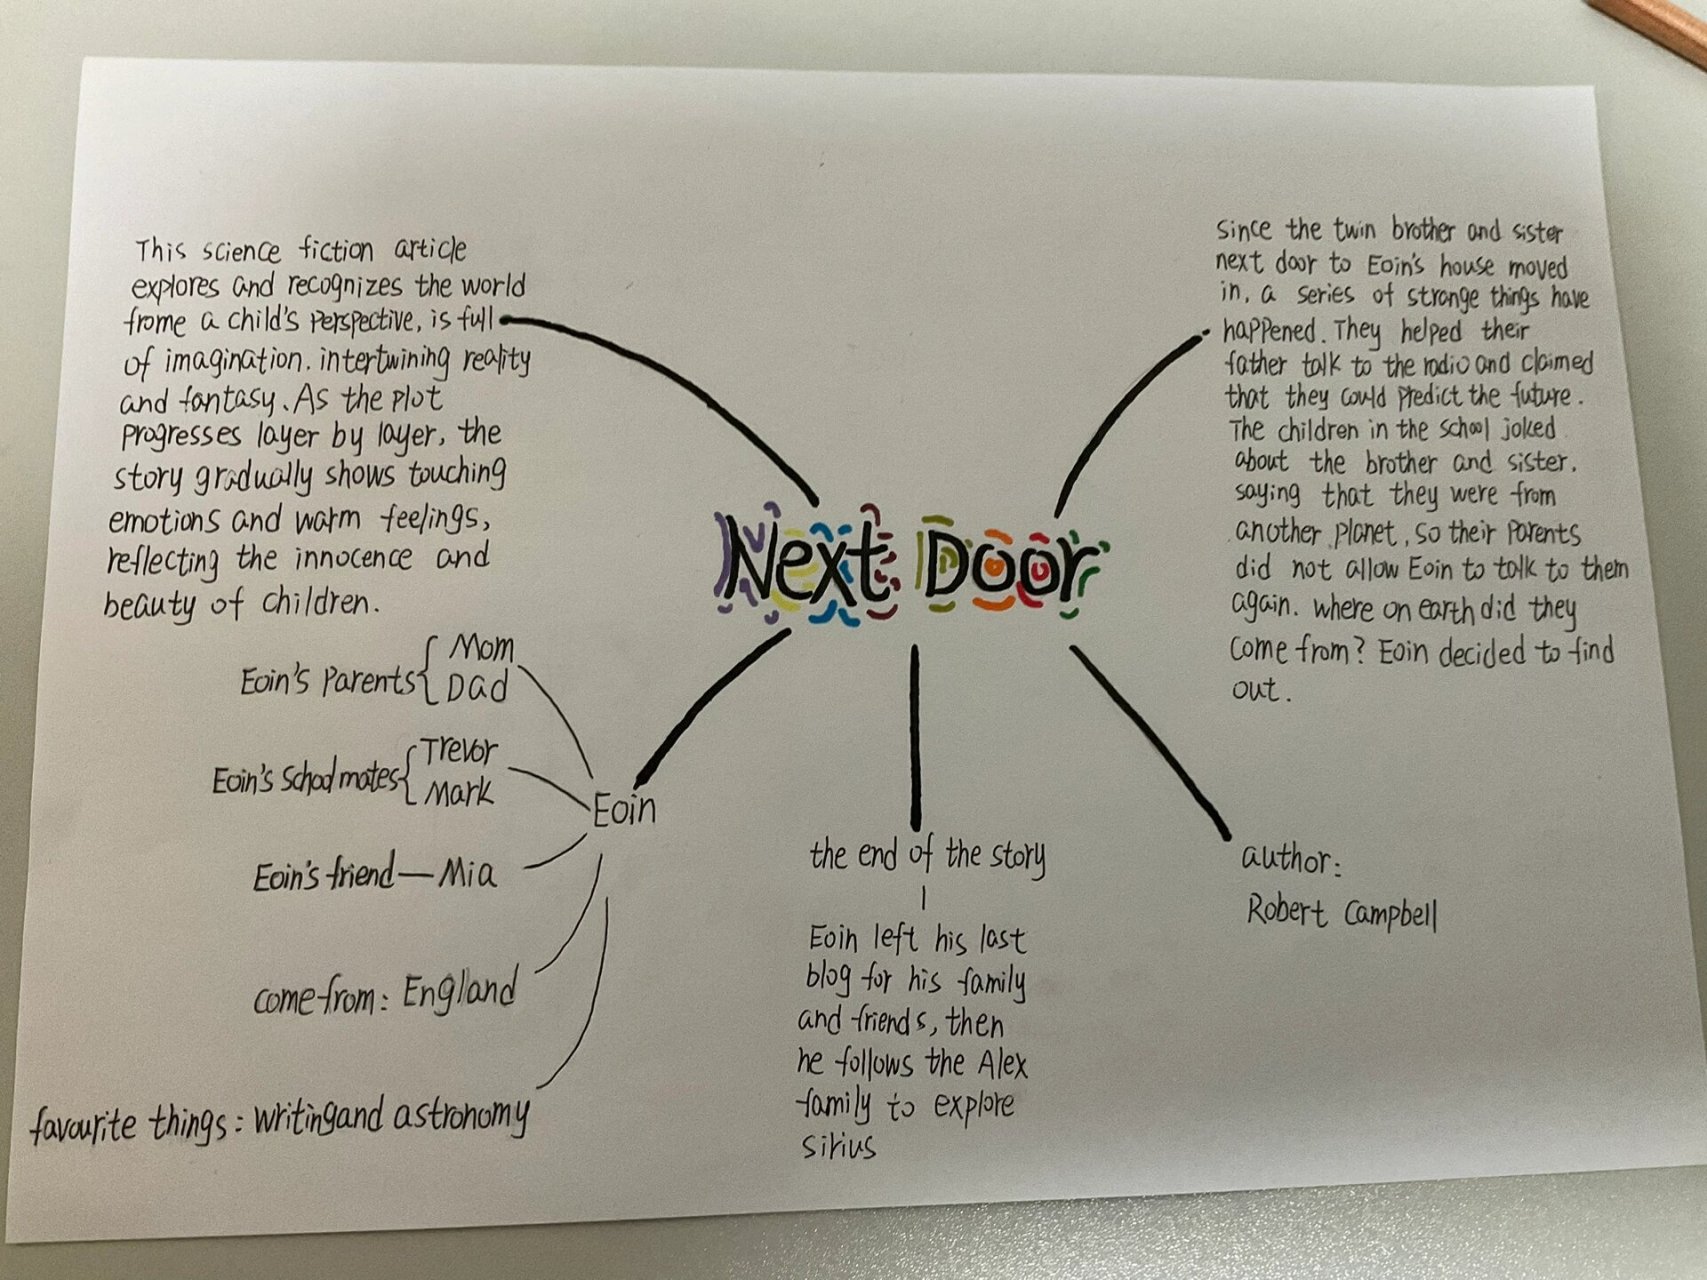 Next Door
This science fiction article
explores and recognizes the world
frome a child's perspective, is full
of imagination. intertwining reality
and fantasy. As the plot
progresses layer by layer, the
story gradually shows touching
emotions and warm feelings,
reflecting the innocence and
beauty of children.
since the twin brother and sister
next door to Eoin's house moved
in, a series of strange things have
happened. They helped their
father talk to the radio and claimed
that they could predict the future.
The children in the school joked
about the brother and sister.
saying that they were from
another planet, so their parents
did not allow Eoin to talk to them
again. where on earth did they
come from? Eoin decided to find
out.
Eoin
Eoin's parents { Mom
Dad
Eoin's Schoolmates { Trevor
Mark
Eoin's friend — Mia
come from: England
favourite things: writing and astronomy
the end of the story
Eoin left his last
blog for his family
and friends, then
he follows the Alex
family to explore
sirius
author:
Robert Campbell